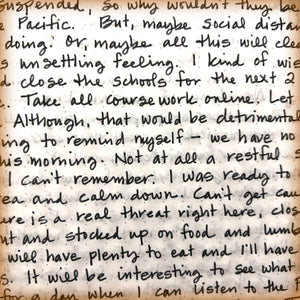 suspended, so why wouldn't they be
Pacific. But, maybe social distan
doing. Or, maybe all this will clea
s unsettling feeling. I kind of wis
d close the schools for the next 2
. Take all coursework online. Let
Although, that would be detrimental
ing to remind myself - we have no
his morning. Not at all a restful s
I can't remember. I was ready to
ea and calm down. Can't get cau
ure is a real threat right here, clos
ut and stocked up on food and lumb
will have plenty to eat and I'll have
s. It will be interesting to see what
for a day when I can listen to the